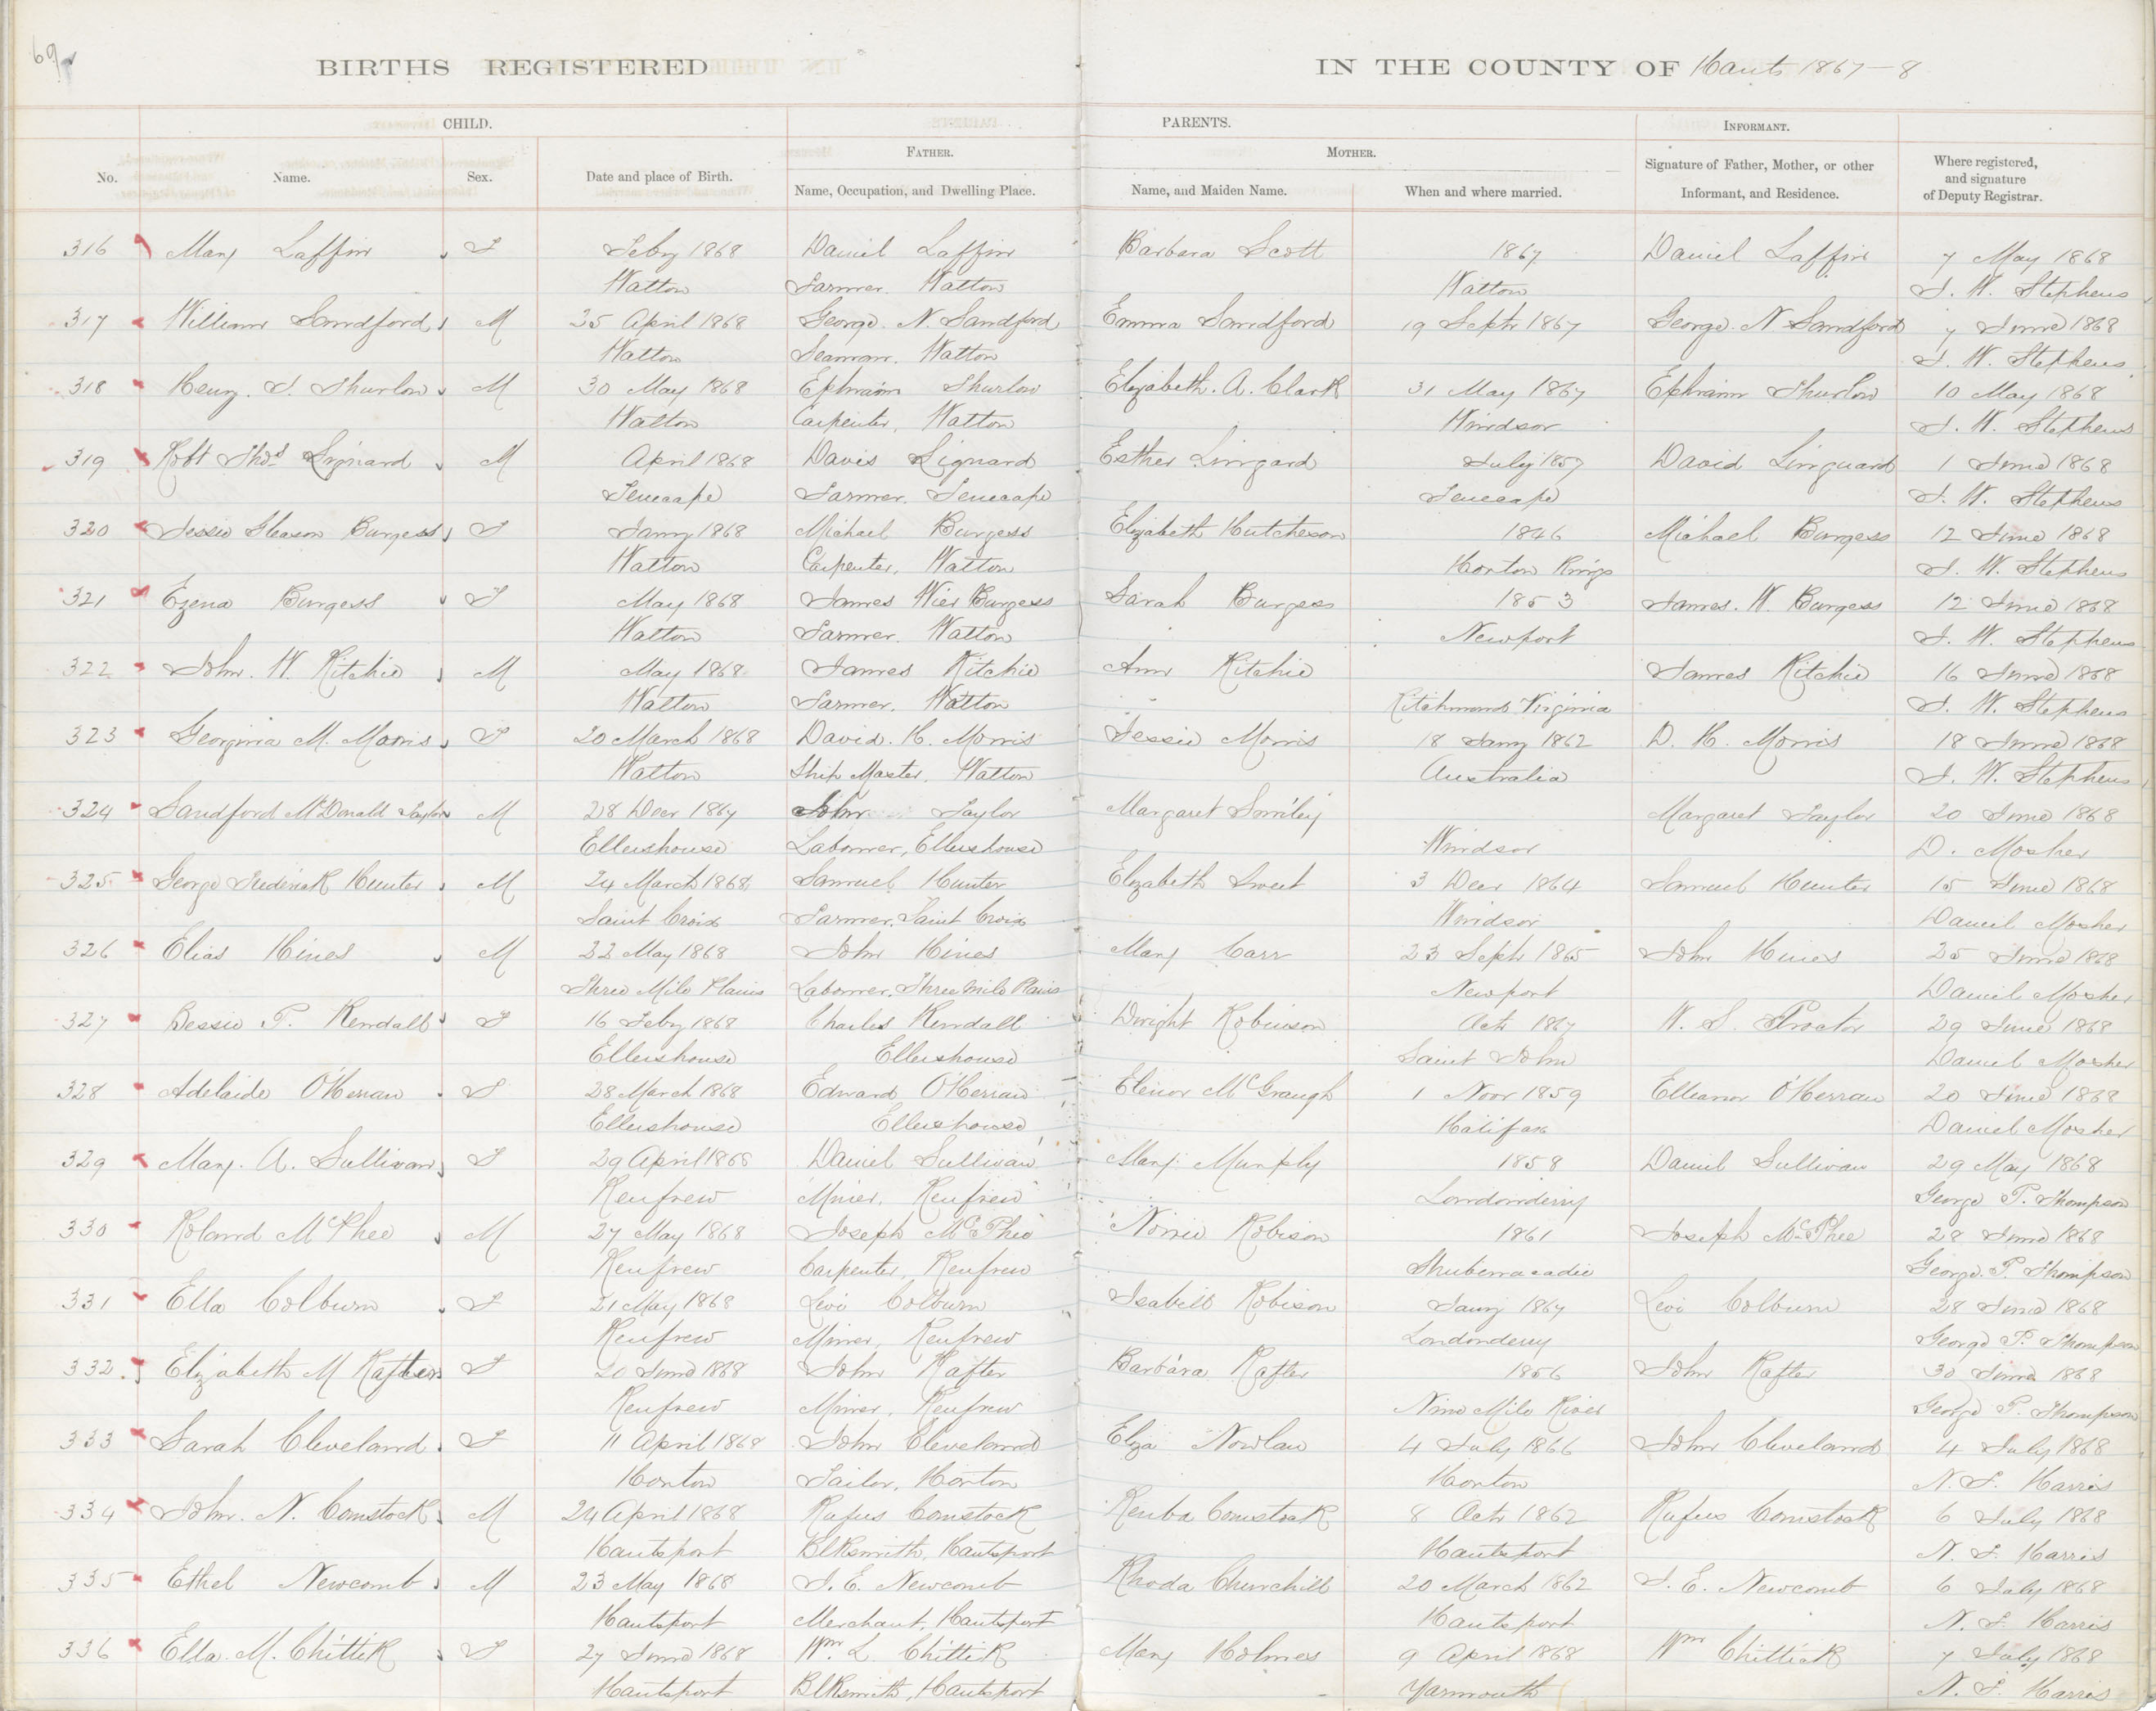 69
BIRTHS REGISTERED IN THE COUNTY OF Hants 1867-8
CHILD. PARENTS. INFORMANT.
FATHER. MOTHER.
No. Name. Sex. Date and place of Birth. Name, Occupation, and Dwelling Place. Name, and Maiden Name. When and where married. Signature of Father, Mother, or other Informant, and Residence. Where registered, and signature of Deputy Registrar.
316 Mary Laffin F Feby 1868 Daniel Laffin Barbara Scott 1867 Daniel Laffin 7 May 1868
Walton Farmer. Walton Walton J. W. Stephens
317 William Sandford M 25 April 1868 George. N. Sandford Emma Sandford 19 Septr 1867 George. N Sandford 7 June 1868
Walton Seaman. Walton J. W. Stephens
318 Henry. T. Thurlow M 30 May 1868 Ephraim Thurlow Elizabeth. A. Clark 31 May 1867 Ephraim Thurlow 10 May 1868
Walton Carpenter, Walton Windsor J. W. Stephens
319 Robt Thos Lignard M April 1868 Davis Lignard Esther Lingard July 1857 David Linguard 1 June 1868
Tenecape Farmer. Tenecape Tenecape J. W. Stephens
320 Jessie Gleason Burgess F Jany 1868 Michael Burgess Elizabeth Hutcheson 1846 Michael Burgess 12 June 1868
Walton Carpenter, Walton Horton Kings J. W. Stephens
321 Ezena Burgess F May 1868 James Wier Burgess Sarah Burgess 1853 James. W. Burgess 12 June 1868
Walton Farmer. Walton Newport J. W. Stephens
322 John. W. Ritchie M May 1868 James Ritchie Ann Ritchie James Ritchie 16 June 1868
Walton Farmer. Walton Ritchmond Virginia J. W. Stephens
323 Georgina M. Morris F 20 March 1868 David. H. Morris Jessie Morris 18 Jany 1862 D. H. Morris 18 June 1868
Walton Ship Master. Walton Australia J. W. Stephens
324 Sandford McDonald Taylor M 28 Decr 1867 John Taylor Margaret Smiley Margaret Taylor 20 June 1868
Ellershouse Labourer, Ellershouse Windsor D. Mosher
325 George Frederick Hunter M 24 March 1868 Samuel Hunter Elizabeth Sweet 3 Decr 1864 Samuel Hunter 15 June 1868
Saint Croix Farmer, Saint Croix Windsor Daniel Mosher
326 Elias Hines M 22 May 1868 John Hines Mary Carr 23 Septr 1865 John Hines 25 June 1868
Three Mile Plains Labourer, Three Mile Plains Newport Daniel Mosher
327 Bessie P. Kendall F 16 Feby 1868 Charles Kendall Dwight Robinson Octr 1867 W. S. Proctor 29 June 1868
Ellershouse Ellershouse Saint John Daniel Mosher
328 Adelaide O'Herran F 28 March 1868 Edward O'Herran Elenor McGraugh 1 Novr 1859 Elleanor O'Herran 20 June 1868
Ellershouse Ellershouse Halifax Daniel Mosher
329 Mary. A. Sullivan F 29 April 1868 Daniel Sullivan Mary Murphy 1858 Daniel Sullivan 29 May 1868
Renfrew Miner. Renfrew Londonderry George P. Thompson
330 Roland McPhee M 27 May 1868 Joseph McPhee Norrie Robison 1861 Joseph McPhee 28 June 1868
Renfrew Carpenter, Renfrew Shubenacadie George. P. Thompson
331 Ella Colburn F 21 May 1868 Levi Colburn Isabell Robison Jany 1867 Levi Colburn 28 June 1868
Renfrew Miner, Renfrew Londonderry George P. Thompson
332 Elizabeth M Rafter F 20 June 1868 John Rafter Barbara Rafter 1856 John Rafter 30 June 1868
Renfrew Miner, Renfrew Nine Mile River George P. Thompson
333 Sarah Cleveland F 11 April 1868 John Cleveland Eliza Nowlan 4 July 1866 John Cleveland 4 July 1868
Horton Sailor, Horton Horton N. T. Harris
334 John. N. Comstock M 24 April 1868 Rufus Comstock Reuba Comstock 8 Octr 1862 Rufus Comstock 6 July 1868
Hantsport Blksmith, Hantsport Hantsport N. T. Harris
335 Ethel Newcomb M 23 May 1868 J. E. Newcomb Rhoda Churchill 20 March 1862 J. E. Newcomb 6 July 1868
Hantsport Merchant, Hantsport Hantsport N. T. Harris
336 Ella. M. Chittik F 27 June 1868 Wm. L Chittik Mary Holmes 9 April 1868 Wm Chittick 7 July 1868
Hantsport Blksmith, Hantsport Yarmouth N. T. Harris